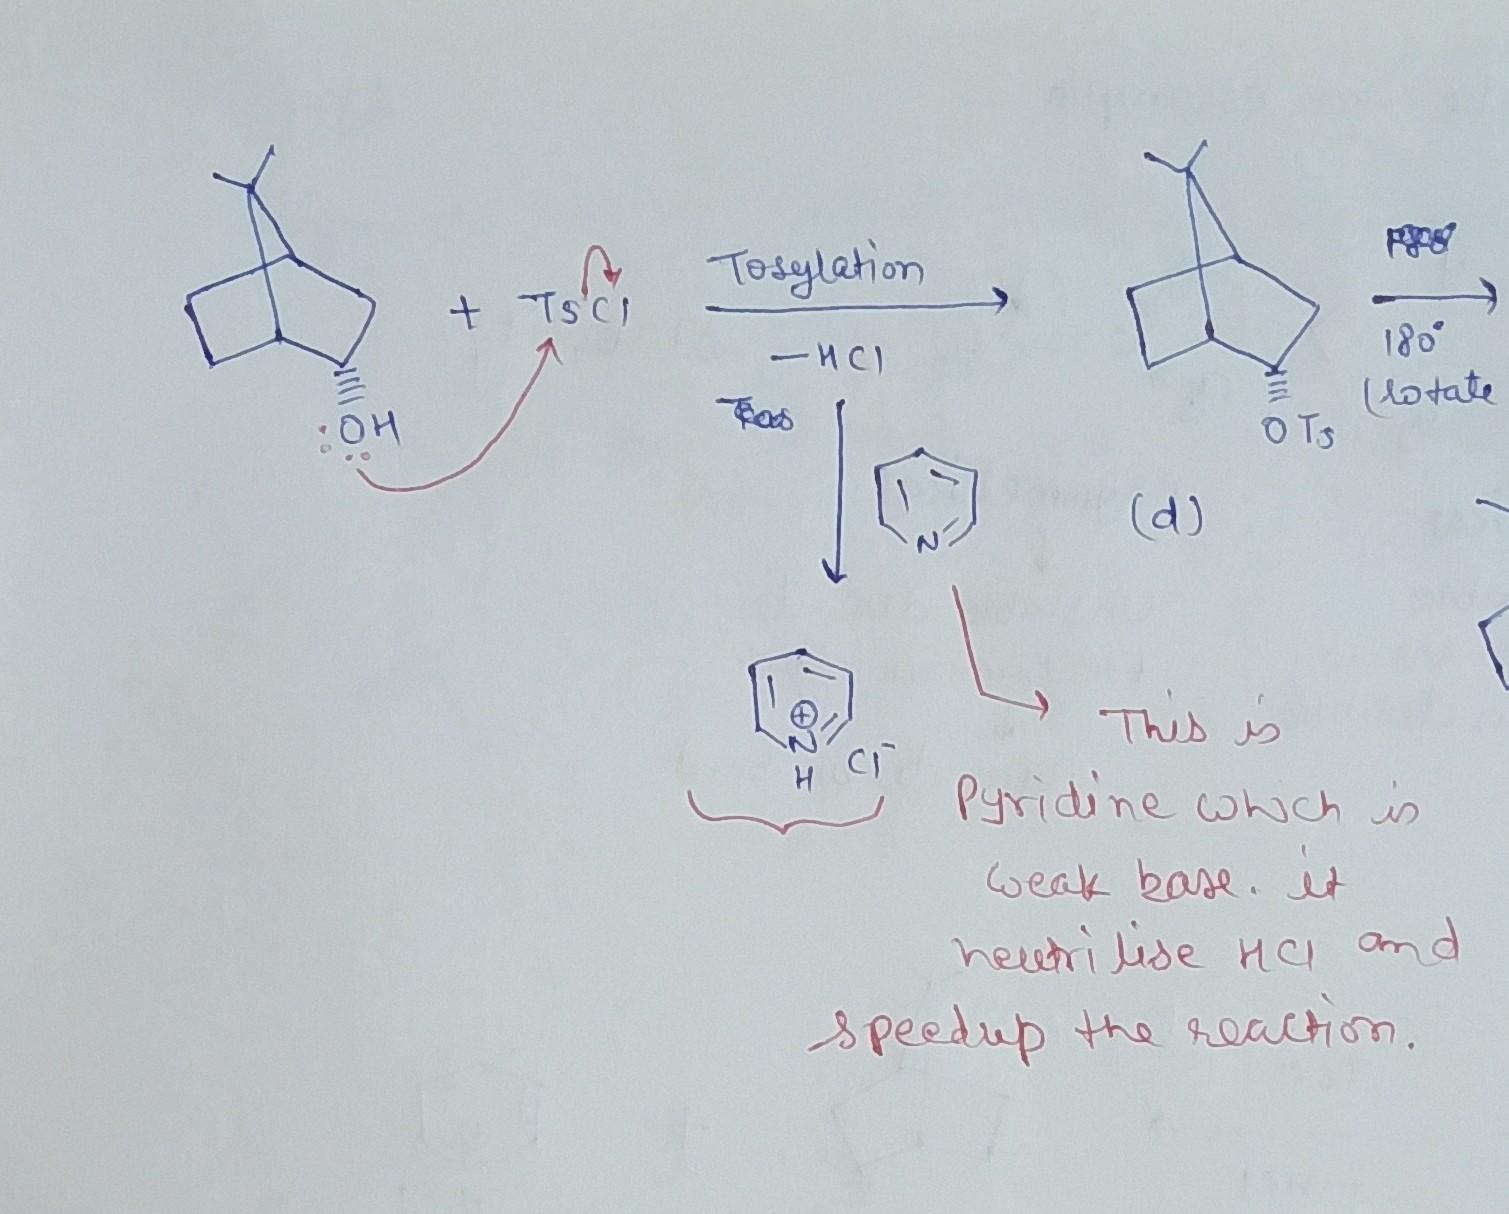 + TsCl
Tosylation
-HCl
:OH
N
OTs
180°
(rotate
(d)
⊕
N
H Cl⁻
This is
Pyridine which is
weak base. it
neutrilise HCl and
speedup the reaction.